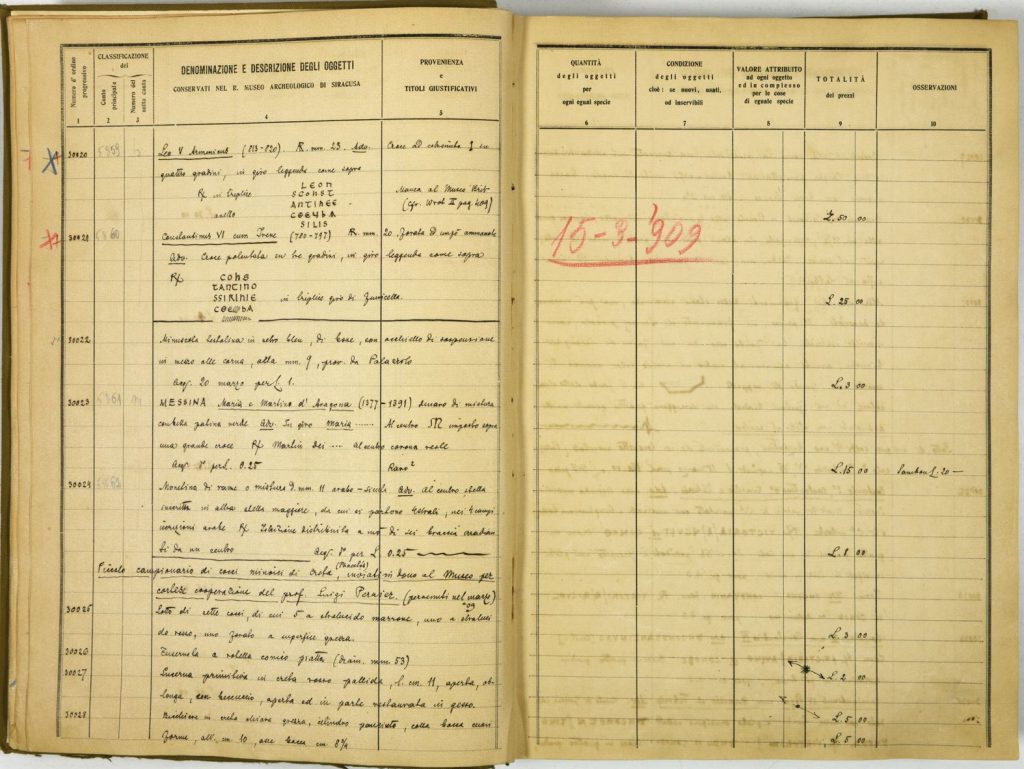 Numero d'ordine progressivo
CLASSIFICAZIONE
del
Conto principale
Numero del nella conto
DENOMINAZIONE E DESCRIZIONE DEGLI OGGETTI
CONSERVATI NEL R. MUSEO ARCHEOLOGICO DI SIRACUSA
PROVENIENZA
e
TITOLI GIUSTIFICATIVI
1 2 3 4 5
30020 Leo V Armenicus (813-820) R. mm. 23. Adv. Croce
quattro gradini, in giro leggenda come sopra
LEON
R in triplice SCONST Manca al Museo Brit
ANTINEE (Cfr. Wrot II pag. 409)
anello COEYBA
SILIS
30021 Constantinus VI cum Irene (780-797) R. mm. 20. Forata
Adv. Croce potentata su tre gradini, in giro leggenda come sopra
R CONS
TANTINO
SSIRINIE in triplice giro di
COEYBA
30022 Minuscola in vetro bleu, di con occhiello di sospensione
in mezzo alle corna, alta mm. 9, prov. da Palazzolo
Acq. 20 marzo per L. 1.
30023 MESSINA Maria e Martino d'Aragona (1377-1391) denaro di mistura
patina verde Adv. In giro Maria ...... Al centro M sopra
una grande croce R Martin dei .... al centro corona reale
Acq. per L. 0.25 Raro 2
30024 Monetina di rame o mistura D. mm. 11 arabo-siculi Adv. Al centro, stella
in altra stella maggiore, da cui si partono
iscrizioni arabe R Iscrizione distribuita a mo' di sei braccia
ti da un centro Acq. per L 0.25
Piccolo campionario di cocci minoici di Creta, (Phaestòs) inviati in dono al Museo per
cortese cooperazione del prof. Luigi Pernier. (pervenuti nel marzo)
09
30025 Lotto di sette cocci, di cui 5 a stralucido marrone, uno a stralucido
do rosso, uno forato a superficie grezza.
30026 a rotella conico piatta (diam. mm. 53)
30027 Lucerna primitiva in creta rosso pallida, l. cm. 11, aperta, ob-
longa, con beccuccio, aperta ed in parte restaurata in gesso.
30028 Bicchiere in creta chiara grezza, cilindro panciuto, colla bocca
forme, alt. cm 10, alla bocca cm 8 3/4
QUANTITÀ
degli oggetti
per
ogni egual specie
CONDIZIONE
degli oggetti
cioè: se nuovi, usati,
od inservibili
VALORE ATTRIBUITO
ad ogni oggetto
ed in complesso
per le cose
di eguale specie
TOTALITÀ
dei prezzi
OSSERVAZIONI
6 7 8 9 10
L. 50 00
15-3-909
L. 25 00
L. 3 00
L. 15 00 Sambon L. 20 —
L. 8 00
L. 3 00
L. 2 00
L. 5 00
L. 5 00